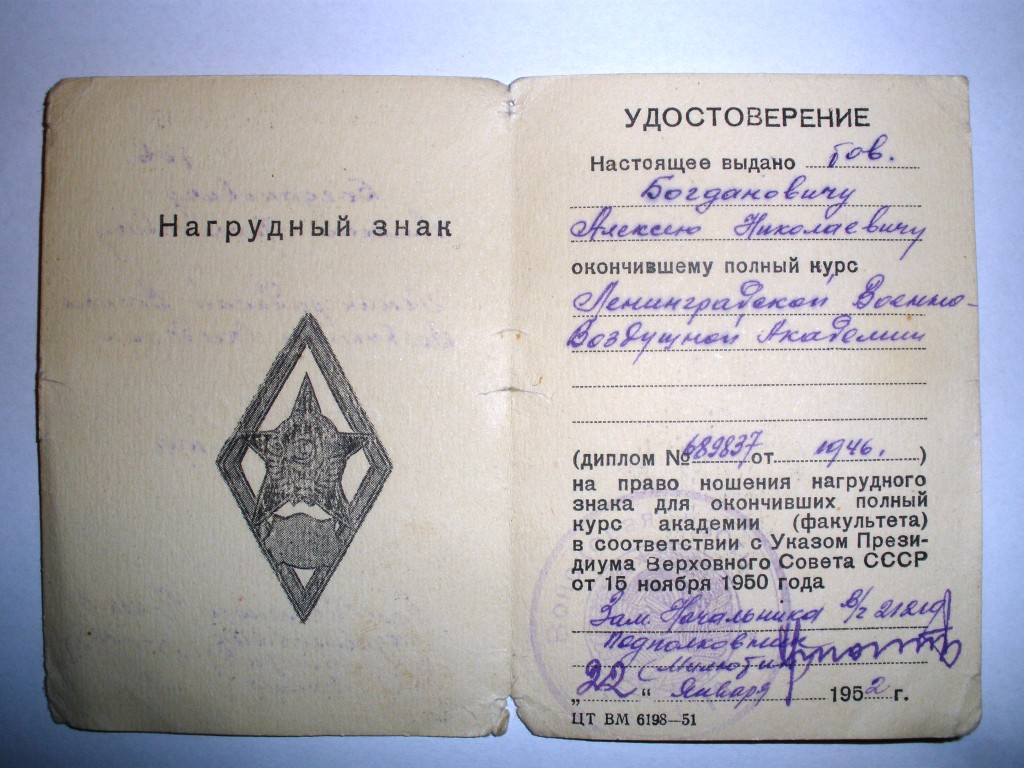 Нагрудный знак
УДОСТОВЕРЕНИЕ
Настоящее выдано тов.
Богдановичу
Алексею Николаевичу
окончившему полный курс
Ленинградской Военно-
Воздушной Академии
(диплом № 689837 от 1946. )
на право ношения нагрудного
знака для окончивших полный
курс академии (факультета)
в соответствии с Указом Прези-
диума Верховного Совета СССР
от 15 ноября 1950 года
Зам. Начальника в/ч 21219
Подполковник
(Милютин)
„22“ Января 1952 г.
ЦТ ВМ 6198—51